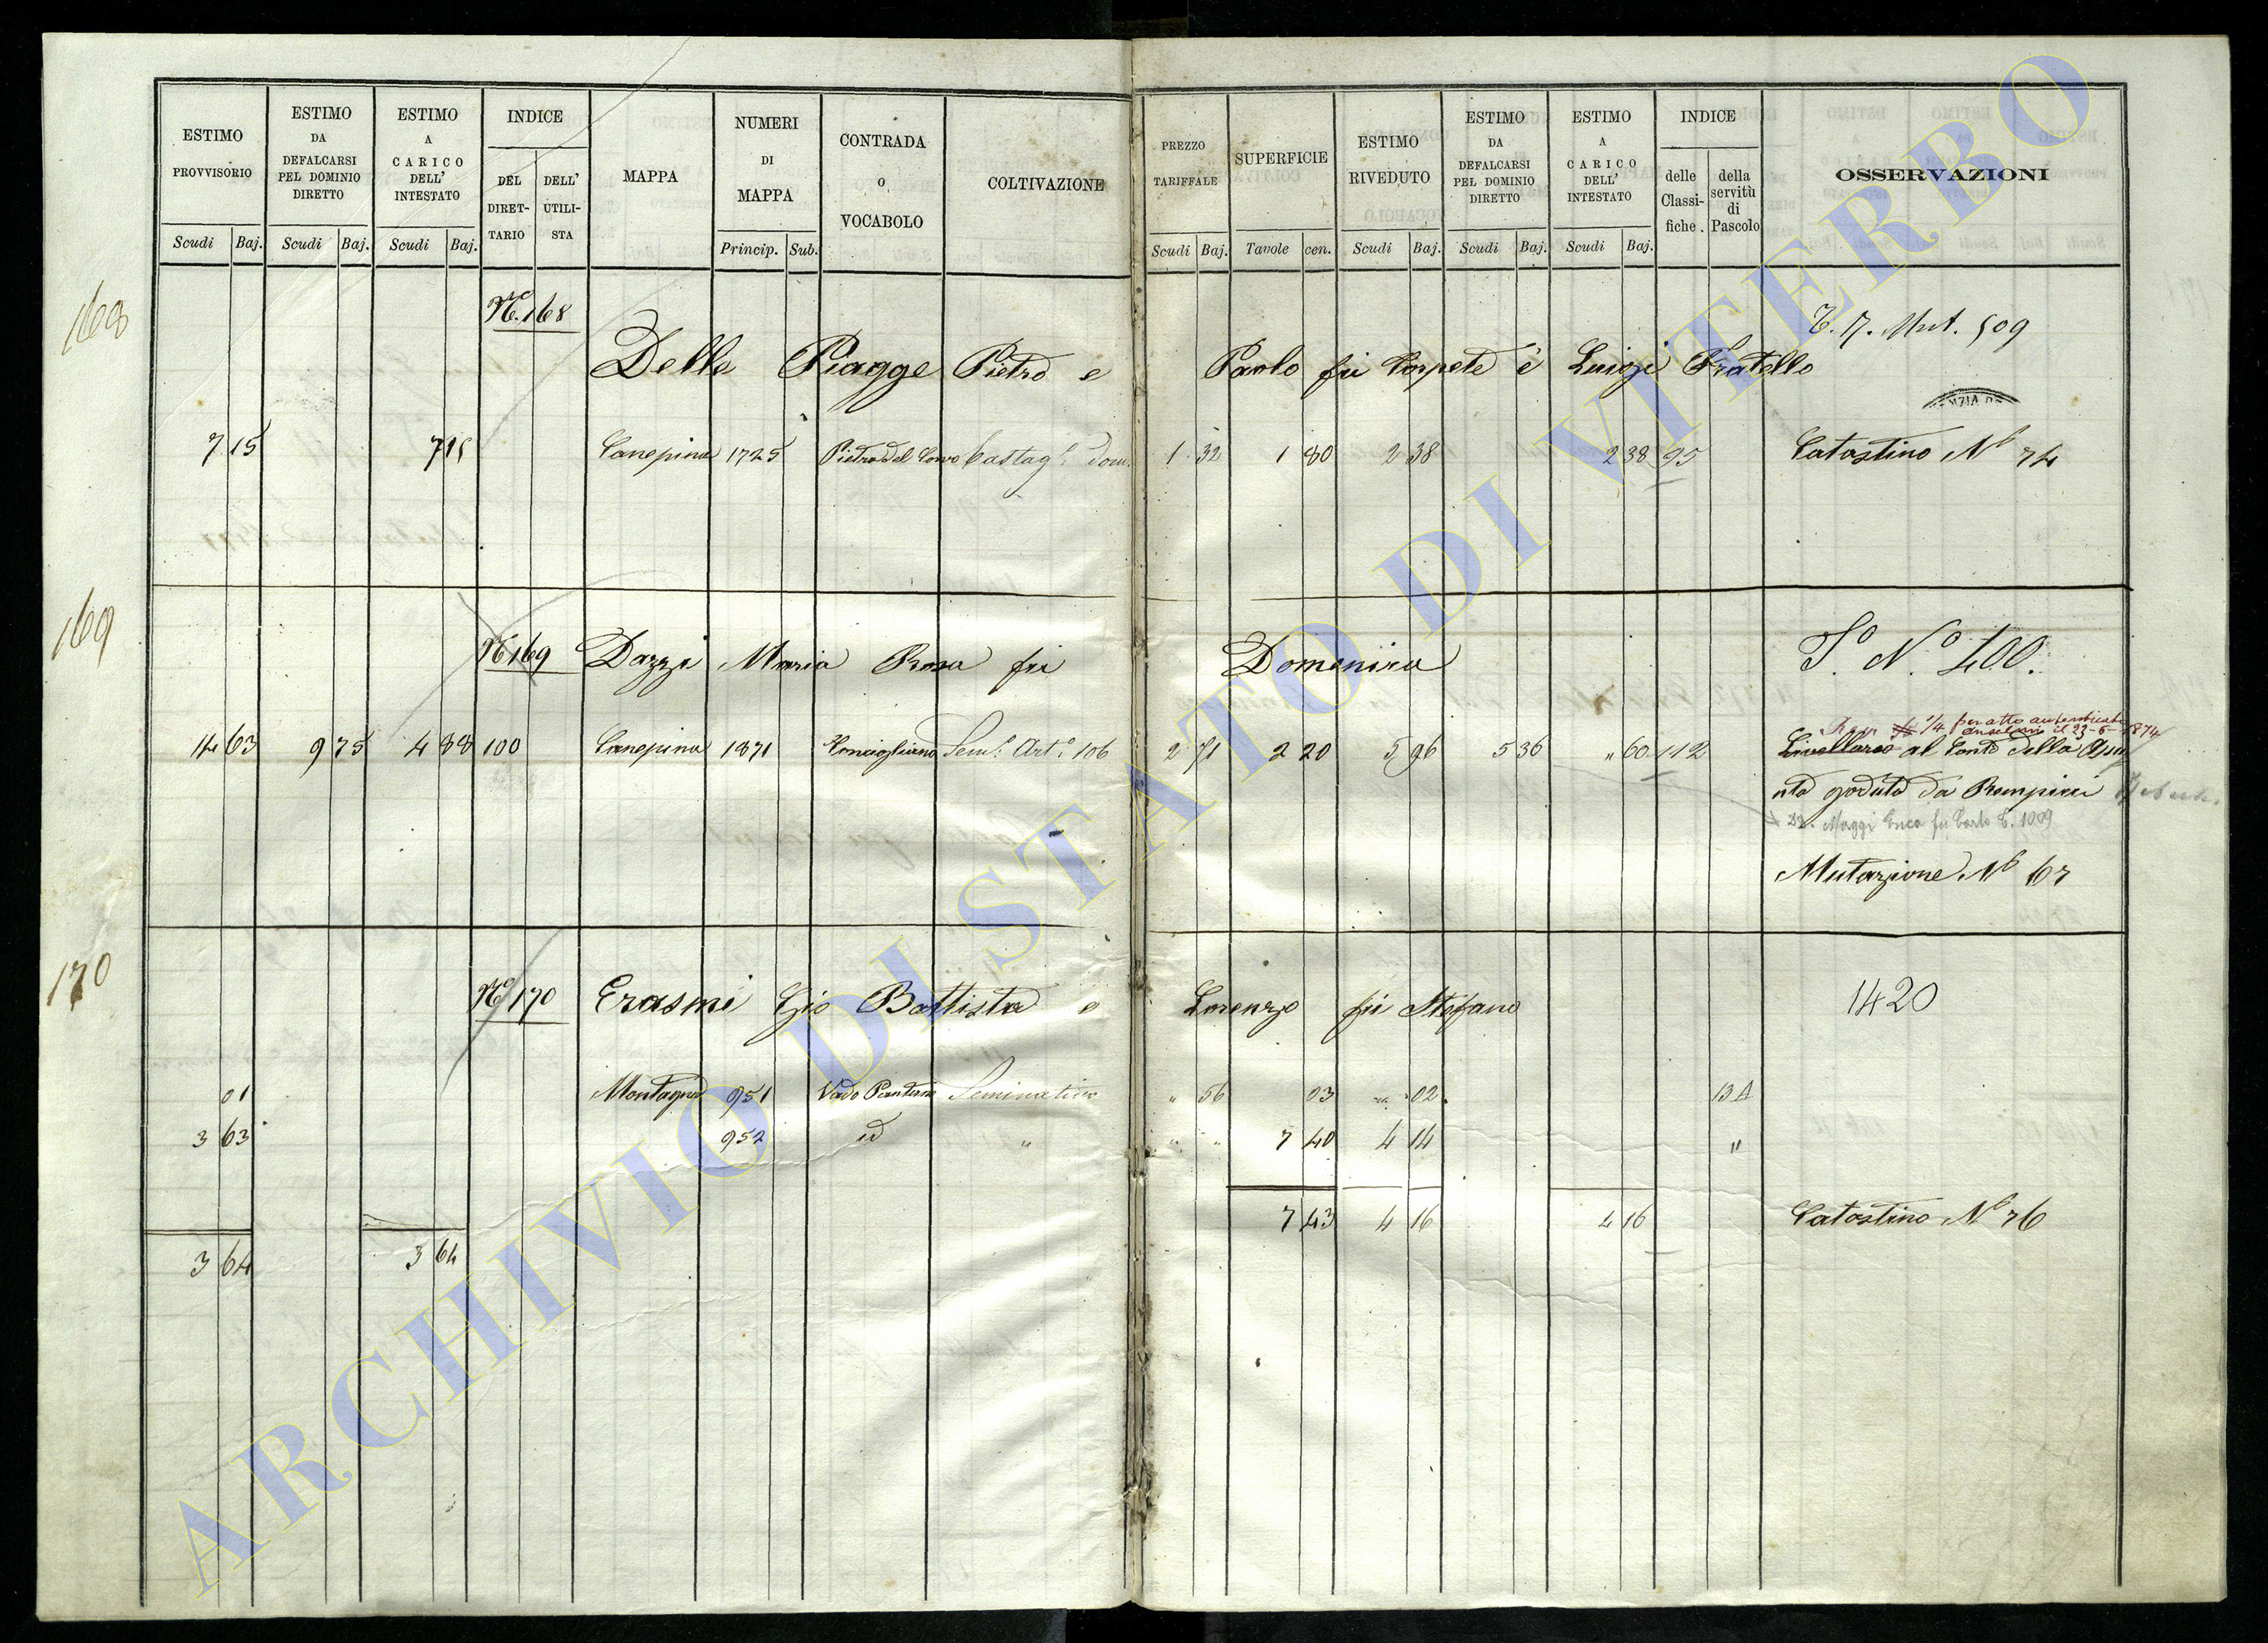 ESTIMO PROVVISORIO
Scudi Baj.
ESTIMO DA DEFALCARSI PEL DOMINIO DIRETTO
Scudi Baj.
ESTIMO A CARICO DELL' INTESTATO
Scudi Baj.
INDICE
DEL DIRET-TARIO
DELL' UTILI-STA
MAPPA
NUMERI DI MAPPA
Princip. Sub.
CONTRADA O VOCABOLO
COLTIVAZIONE
PREZZO TARIFFALE
Scudi Baj.
SUPERFICIE
Tavole cen.
ESTIMO RIVEDUTO
Scudi Baj.
ESTIMO DA DEFALCARSI PEL DOMINIO DIRETTO
Scudi Baj.
ESTIMO A CARICO DELL' INTESTATO
Scudi Baj.
INDICE
delle Classi-fiche.
della servitù di Pascolo
OSSERVAZIONI
168
N.º 168
Delle Piagge Pietro e Paolo fu e Luigi Fratello
Mut. 509
7 15 7 15 Canepina 1725 Pietra del Corvo Castagº dom. 1 32 1 80 2 38 2 38 95 Catastino Nº 74
169
Nº 169 Dazzi Maria Rosa fu Domenico
Nº 400.
1/4 per atto autenticato
il 23-5-1874
14 63 9 75 4 88 100 Canepina 1871 Semº Artº 106 2 71 2 20 5 96 5 36 " 60 112 Livellario al Conte della Assu
nta goduto da Rempicci
Maggi fu Carlo C. 1009
Mutazione Nº 67
170
Nº 170 Erasmi Gio Battista e Lorenzo fu Stefano
1420
01 Montagna 951 Vado Seminativo " 56 03 " 02 134
3 63 952 id " " " 7 40 4 14 "
7 43 4 16 4 16 Catastino Nº 76
3 64 3 64
ARCHIVIO DI STATO DI VITERBO